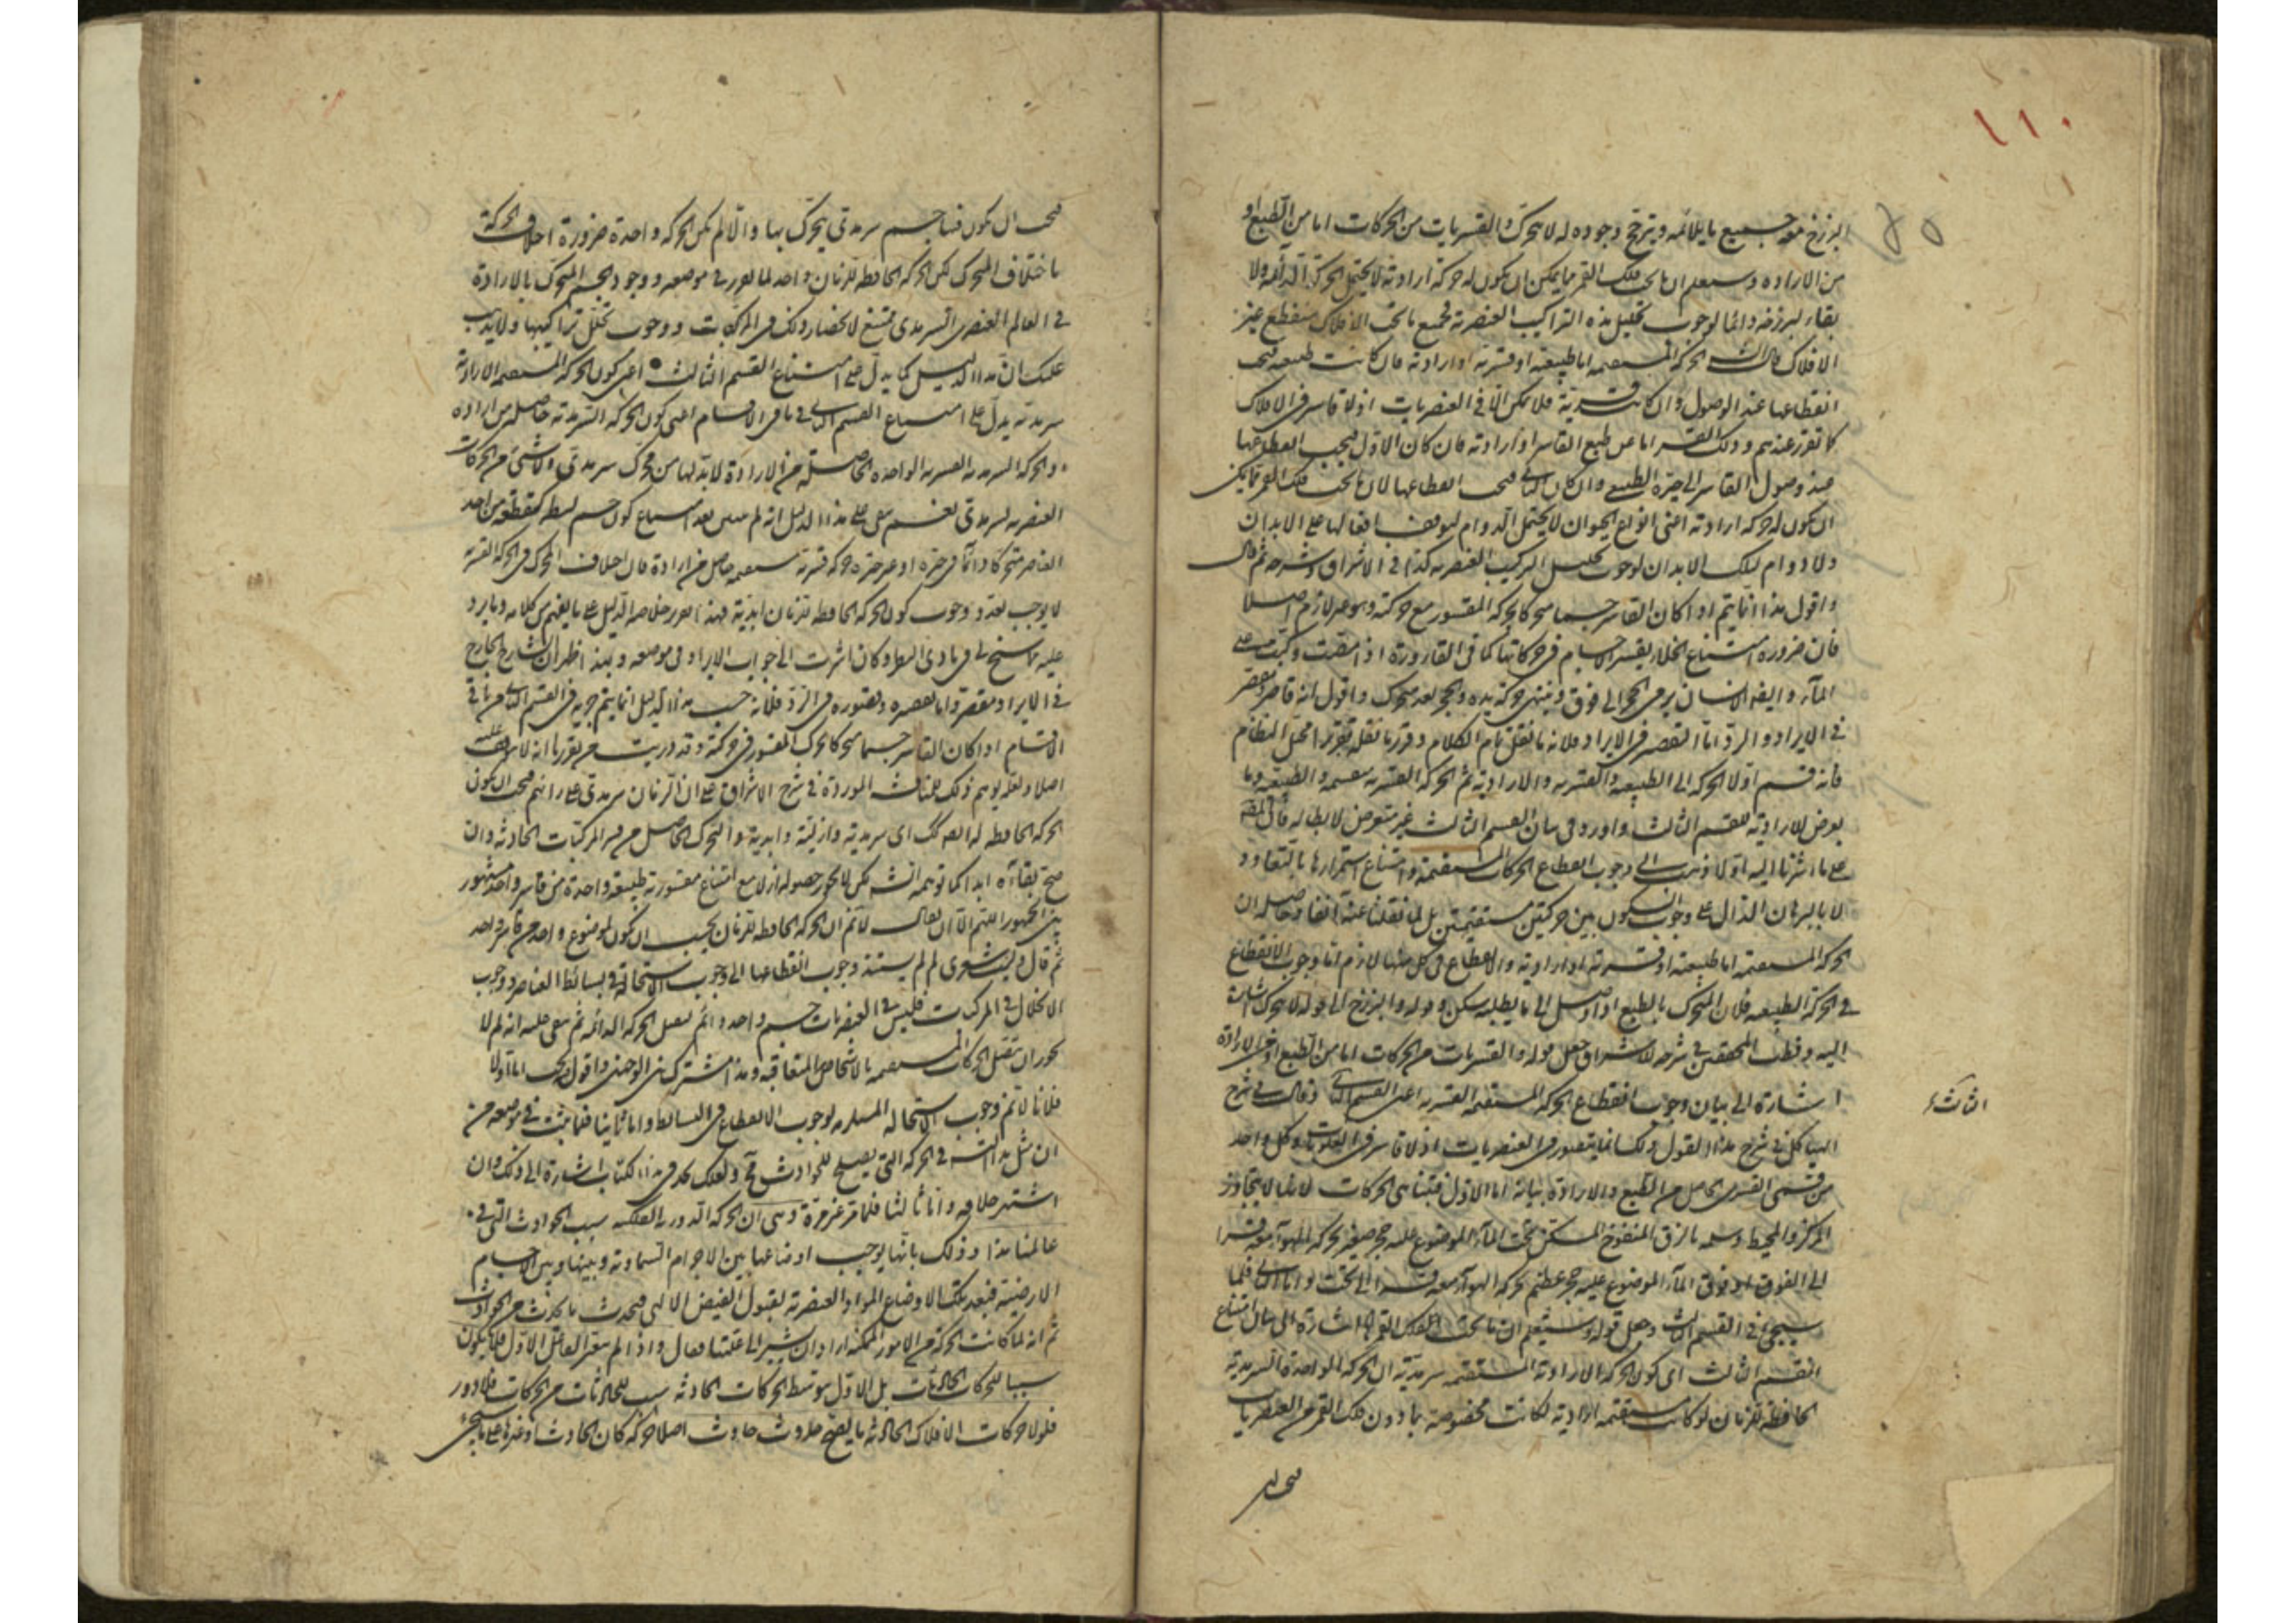 ١١٠
٨٥
البرزخ معه جميع ما يلائمه ويترجح وجوده له لا يتحرك والقسريات من الحركات اما من الطبع او
من الارادة وستعلم ان ما تحت فلك القمر ما يمكن ان يكون له حركة ارادية لا يحتمل الحركة الدائمة ولا
بقاء لبرزخه دائما لوجوب تحليل هذه التراكيب العنصرية فجميع ما تحت الافلاك منقطع غير
الافلاك قال الش الحركة المستقيمة اما طبيعية او قسرية او ارادية فان كانت طبيعية فيجب
انقطاعها عند الوصول وان كانت قسرية فلا يمكن الا في العنصريات اذ لا قاسر في الافلاك
كما تقرر عندهم وذلك القسر اما عن طبع القاسر او ارادته فان كان الاول فيجب انقطاعها
عند وصول القاسر الى حيزه الطبيعي وان كان الثاني فيجب انقطاعها لان ما تحت فلك القمر مما يمكن
ان يكون له حركة ارادية اعني انواع الحيوان لا يحتمل الدوام لتوقف افعالها على الابدان
ولا دوام لتلك الابدان لوجوب تحليل التركيب العنصرية كذا في الاشراق وشرحه ثم قال
واقول هذا انما يتم اذا كان القاسر جسما متحركا يحركه المقسور مع حركته وهو غير لازم اصلا
فان ضرورة امتناع الخلاء يقسر الاجسام في حركاتها كما في القارورة اذا مصت وكبت على
الماء وايضا الانسان يرمى الحجر الى فوق وينتهى حركة يده والحجر بعد متحرك واقول انه قاصر ومقصر
في الايراد والرد اما التقصير في الايراد فلانه ما نقل تمام الكلام وقرر ما نقله تقريرا مخل النظام
فانه قسم اولا الحركة الى الطبيعية والقسرية والارادية ثم الحركة القسرية بقسميه والطبيعية وما
تعرض للارادية للقسم الثالث واورد في بيان القسم الثالث غير متعرض لابطاله فان المص
على ما اشرنا اليه اولا ذهب الى وجوب انقطاع الحركات المستقيمة وامتناع استمرارها بالتعاود
لا بالبرهان الدال على وجوب السكون بين حركتين مستقيمتين بل لما نقلنا عنه آنفا وحاصله ان
الحركة المستقيمة اما طبيعية او قسرية او ارادية والانقطاع في كل منها لازم اما وجوب الانقطاع
في الحركة الطبيعية فلان المتحرك بالطبع اذا وصل الى ما يطلبه سكن وقوله والبرزخ الى قوله لا يتحرك اشارة
اليه وقطب المحققين في شرحه للاشراق جعل قوله والقسريات من الحركات اما من الطبع او من الارادة
اشارة الى بيان وجوب انقطاع الحركة المستقيمة القسرية اعنى القسم الثاني وقال في شرح
الثالث
الهياكل في شرح هذا القول ذلك انما يتصور في العنصريات اذ لا قاسر في الفلكيات وكل واحد
من قسمى القسرى الحاصل من الطبع والارادة بيانه اما الاول فبتناهى الحركات لانها لا يتجاوز
المركز والمحيط وسمه بالزق المنفوخ المسكن تحت الماء الموضوع عليه حجر صغير يحركه الهواء معه قسرا
الى الفوق او فوق الماء الموضوع عليه حجر عظيم يحركه الهواء معه قسرا الى تحت واما الثاني فلما
سيجئ في القسم الثالث وجعل قوله وستعلم ان ما تحت الفلك القمر اشارة الى بيان امتناع
القسم الثالث اى كون الحركة الارادية المستقيمة سرمدية ان الحركة الواحدة السرمدية
الحافظة للزمان لو كانت مستقيمة ارادية لكانت مخصوصة بما دون فلك القمر من العنصريات
فيجب ان
فيجب ان يكون فيها جسم سرمدى يتحرك بها والا لم يكن الحركة واحدة ضرورة اختلاف الحركة
باختلاف المتحرك لكن الحركة الحافظة للزمان واحد لما تقرر في موضعه ووجود الجسم المتحرك بالارادة
في العالم العنصرى السرمدى ممتنع لانحصار ذلك في المركبات ووجوب تحلل تراكيبها ولا يذهب
عليك ان هذا الدليل كما يدل على امتناع القسم الثالث اعنى كون الحركة المستقيمة الارادية
سرمدية يدل على امتناع القسم الثاني في باقى الاقسام اعنى كون الحركة السرمدية حاصلة من ارادة
والحركة السرمدية القسرية الواحدة الحاصلة من الارادة لابد لها من محرك سرمدى ولا شئ من المحركات
العنصرية بسرمدى نعم بقى على هذا الدليل انه لم يبين بعد امتناع كون جسم بسيط كقطعة من احد
العناصر متحركا دائما في حيزه او غير حيزه حركة قسرية مستقيمة حاصل من ارادة فان اختلاف المحرك في الحركة القسرية
لا يوجب تعدد ووجوب كون الحركة الحافظة للزمان ابدية فهذا تقرير خلاصة الدليل على ما يفهم من كلامه وما يرد
عليه مما سنح لى في بادى النظر وكان اشرت الى جواب الايراد في موضعه وبهذا ظهر ان الشارح الجارح
في الايراد مقصر واما قصوره وتصوره في الرد فلانه حسب هذا الدليل انما يتم جريه في القسم الثاني من باقى
الاقسام اذا كان القاسر جسما متحركا يحرك المقسور في حركته وقد دريت من تقريرنا انه لا يتوقف عليه
اصلا ولعله يوهم ذلك المناقشة الموردة في شرح الاشراق على ان الزمان سرمدى على رايهم فيجب ان يكون
الحركة الحافظة له ايضا كذلك اى سرمدية وازلية وابدية والتحرك الحاصل من المركبات الحادثة وان
صح بقاءه ابدا كما توهمه الش لكن لا يجوز حصوله ازلا مع امتناع مقسورية طبيعة واحدة من قاسر واحد مشهور
بين الجمهور اللهم الا ان يقال لا نم ان الحركة الحافظة للزمان يجب ان يكون لموضوع واحد من قاسر واحد
ثم قال وليت شعرى لم لم يستند وجوب انقطاعها الى وجوب الاستحالة في بسائط العناصر ووجوب
الانحلال في المركبات فليس في العنصريات جسم واحد دائم يفعل الحركة الدائمة ثم بقى عليه انه لم لا
يجوز ان يتصل الحركات المستقيمة بالاشخاص المتعاقبة وهذا مشترك بين الوجهين واقول يجب اما اولا
فلانا لا نم وجوب الاستحالة المستلزمة لوجوب الانقطاع في البسائط واما ثانيا فلما ثبت في موضعه من
ان مثل هذا التشبه في الحركة التي يصلح للحوادث مح ولعلك تجد في هذا الكتاب اشارة الى ذلك وان
اشتهر خلافه واما ثالثا فلما مر غير مرة وهى ان الحركة الدورية الفلكية سبب الحوادث التى في
عالمنا هذا وذلك بانها يوجب اوضاعها بين الاجرام السماوية وبينها وبين الاجسام
الارضية فبعد تلك الاوضاع المواد العنصرية لقبول الفيض الالهى فيحدث ما يحدث من الحوادث
ثم انه لما كانت الحركة من الامور الممكنة اراد ان يشير الى علتها فقال واذا لم يتغير الفاعل الاول فلا يكون
سببا للحركات الحادثات بل الاول بتوسط الحركات الحادثة سبب للحادثات من الحركات فلا دور
فلولا حركات الافلاك الحادثة ما يصح حدوث حادث اصلا حركة كان الحادث او غيرها على ما سيجئ